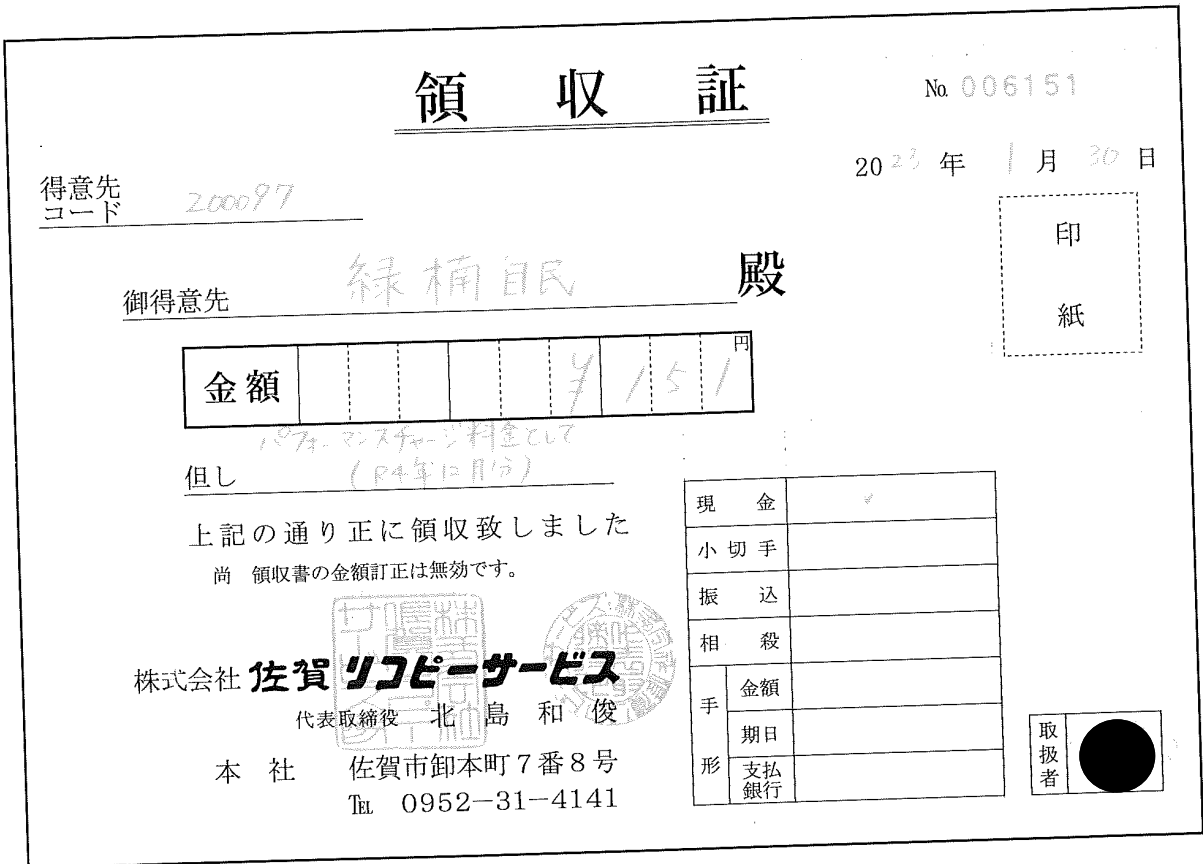 領収証
No. 006151
2023年 1月 30日
得意先コード 200097
印紙
御得意先 緑楠自民 殿
金額 ¥151円
パフォーマンスチャージ料金として
但し (R4年12月分)
上記の通り正に領収致しました
尚 領収書の金額訂正は無効です。
株式会社 佐賀リコピーサービス
代表取締役 北島和俊
本社 佐賀市卸本町7番8号
TEL 0952-31-4141
現金 ✓
小切手
振込
相殺
手形 金額
期日
支払銀行
取扱者